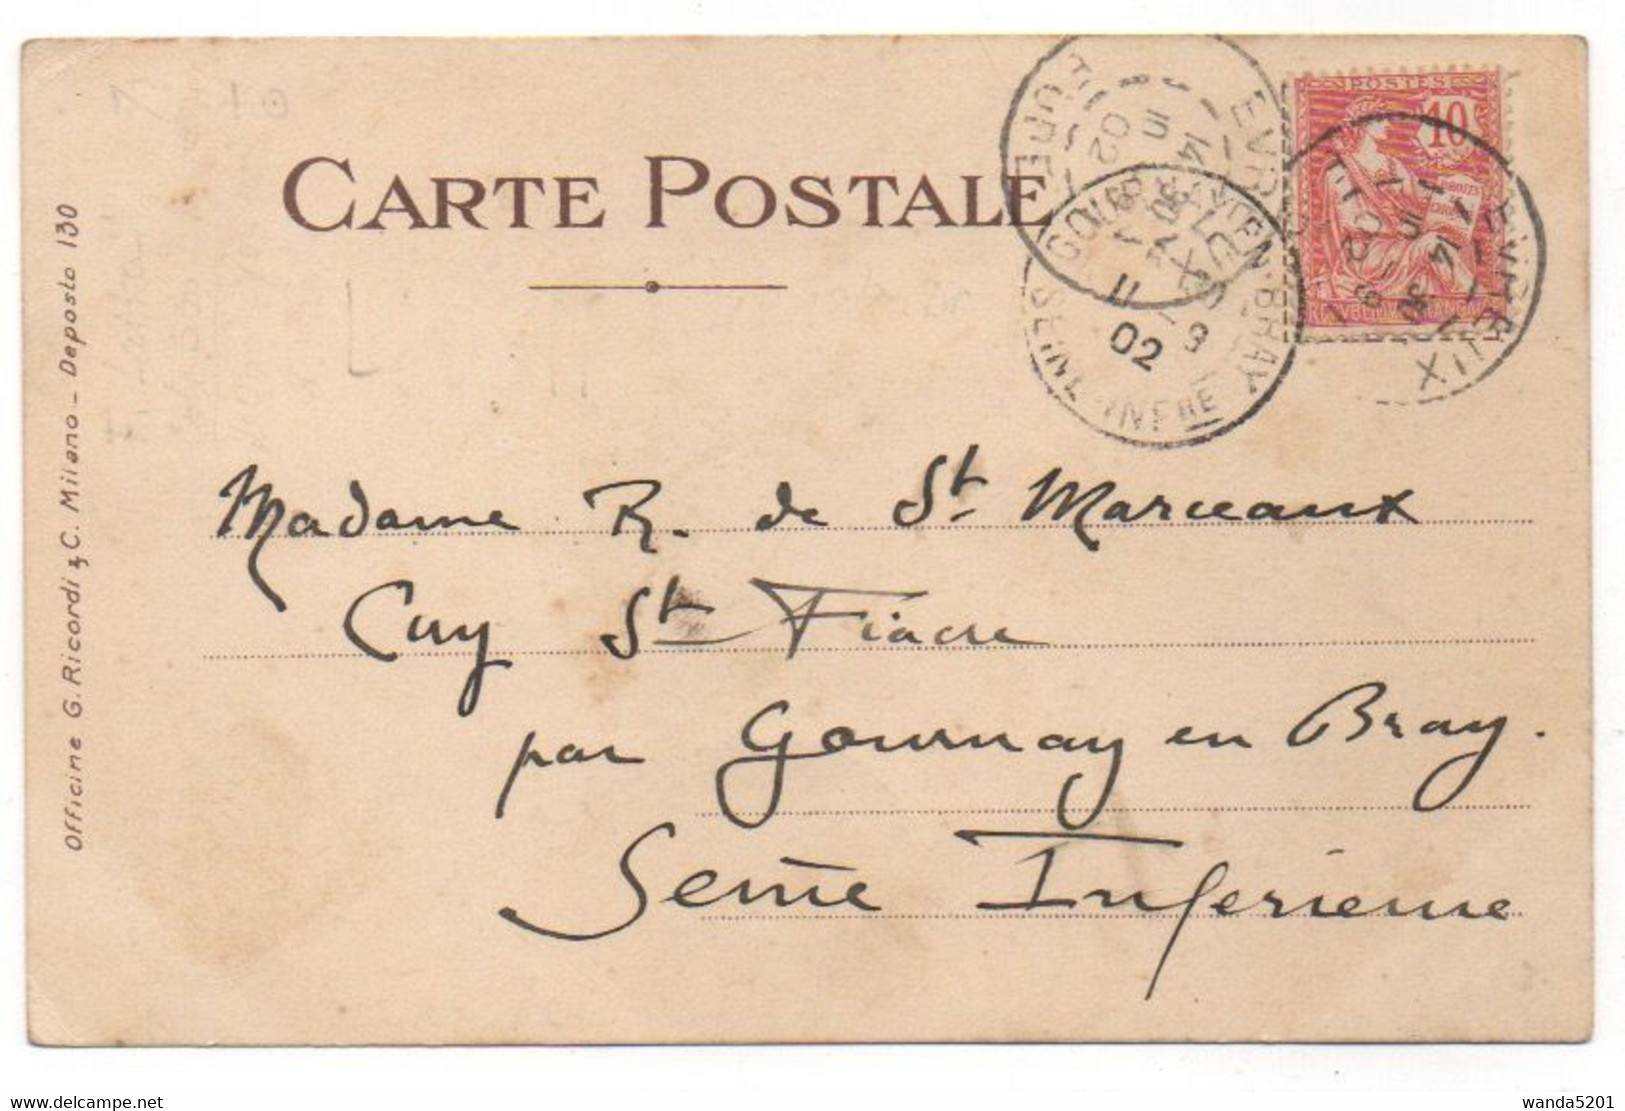 CARTE POSTALE
POSTES
10
EVREUX
EURE
14 30
15
02
GOURNAY EN BRAY
SEINE INFRE
11
9
02
Officine G. Ricordi & C. Milano - Deposto 130
Madame R. de St Marceaux
Cuy St Fiacre
par Gournay en Bray.
Seine Inferieure
wanda5201